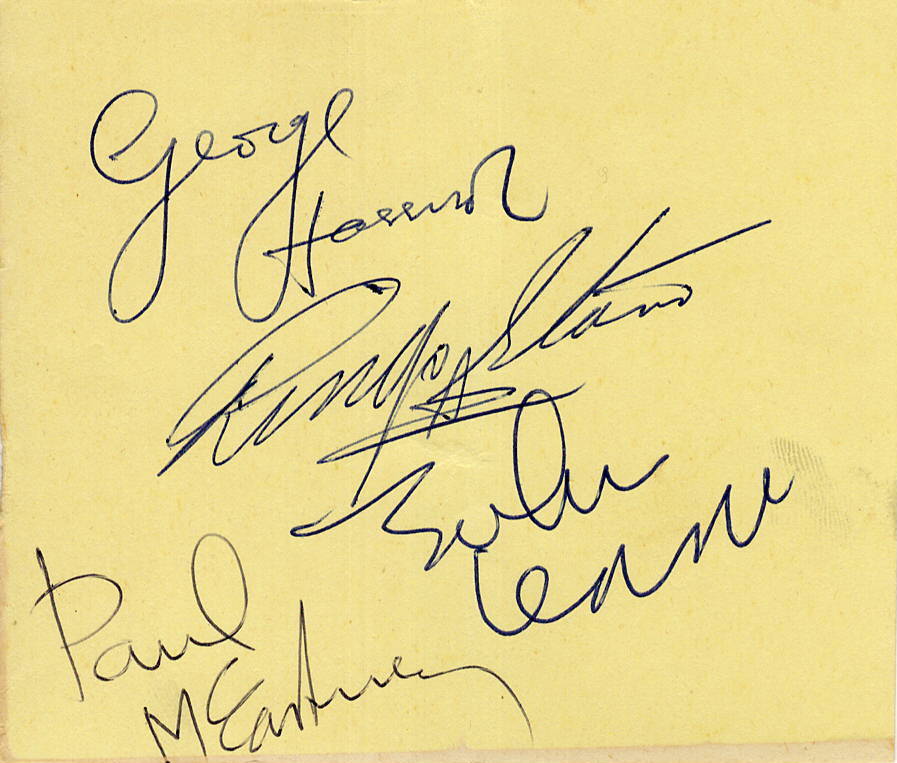 George
Harrison
Ringo Starr
John
Lennon
Paul
McCartney